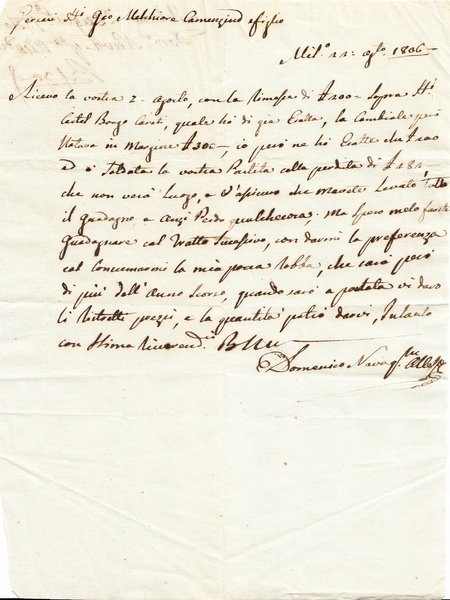 Gersau Sri Gio Melchiore Camenzind e figlio
Mil.o 22: ag.to 1806
Ricevo la vostra 2- Agosto, con la Rimessa di £200- Sopra
quale ho di già Esatta, la Cambiale però
Notava in Margine £300-, io però ne ho Esatte che £200
e Saldata la vostra Partita colla perdita di £181-
che non verà Luogo, e v'assicuro che mavete Levato tutto
il guadagno e anzi Perdo qualchecosa, Ma Spero melo farete
Guadagnare col Tratto Sucessivo, con darmi la preferenza
col Consumarmi la mia poca Robba, che sarà però
di più dell'Anno Scorso, quando sarò a portata vi darò
li Ristretti prezzi, e la quantità potrò darvi, Intanto
con Stima
Domenico Nava